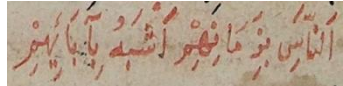 اَلنَّاسِ بِزَمَانِهِمْ اَشْبَهُ بِآبَائِهِمْ